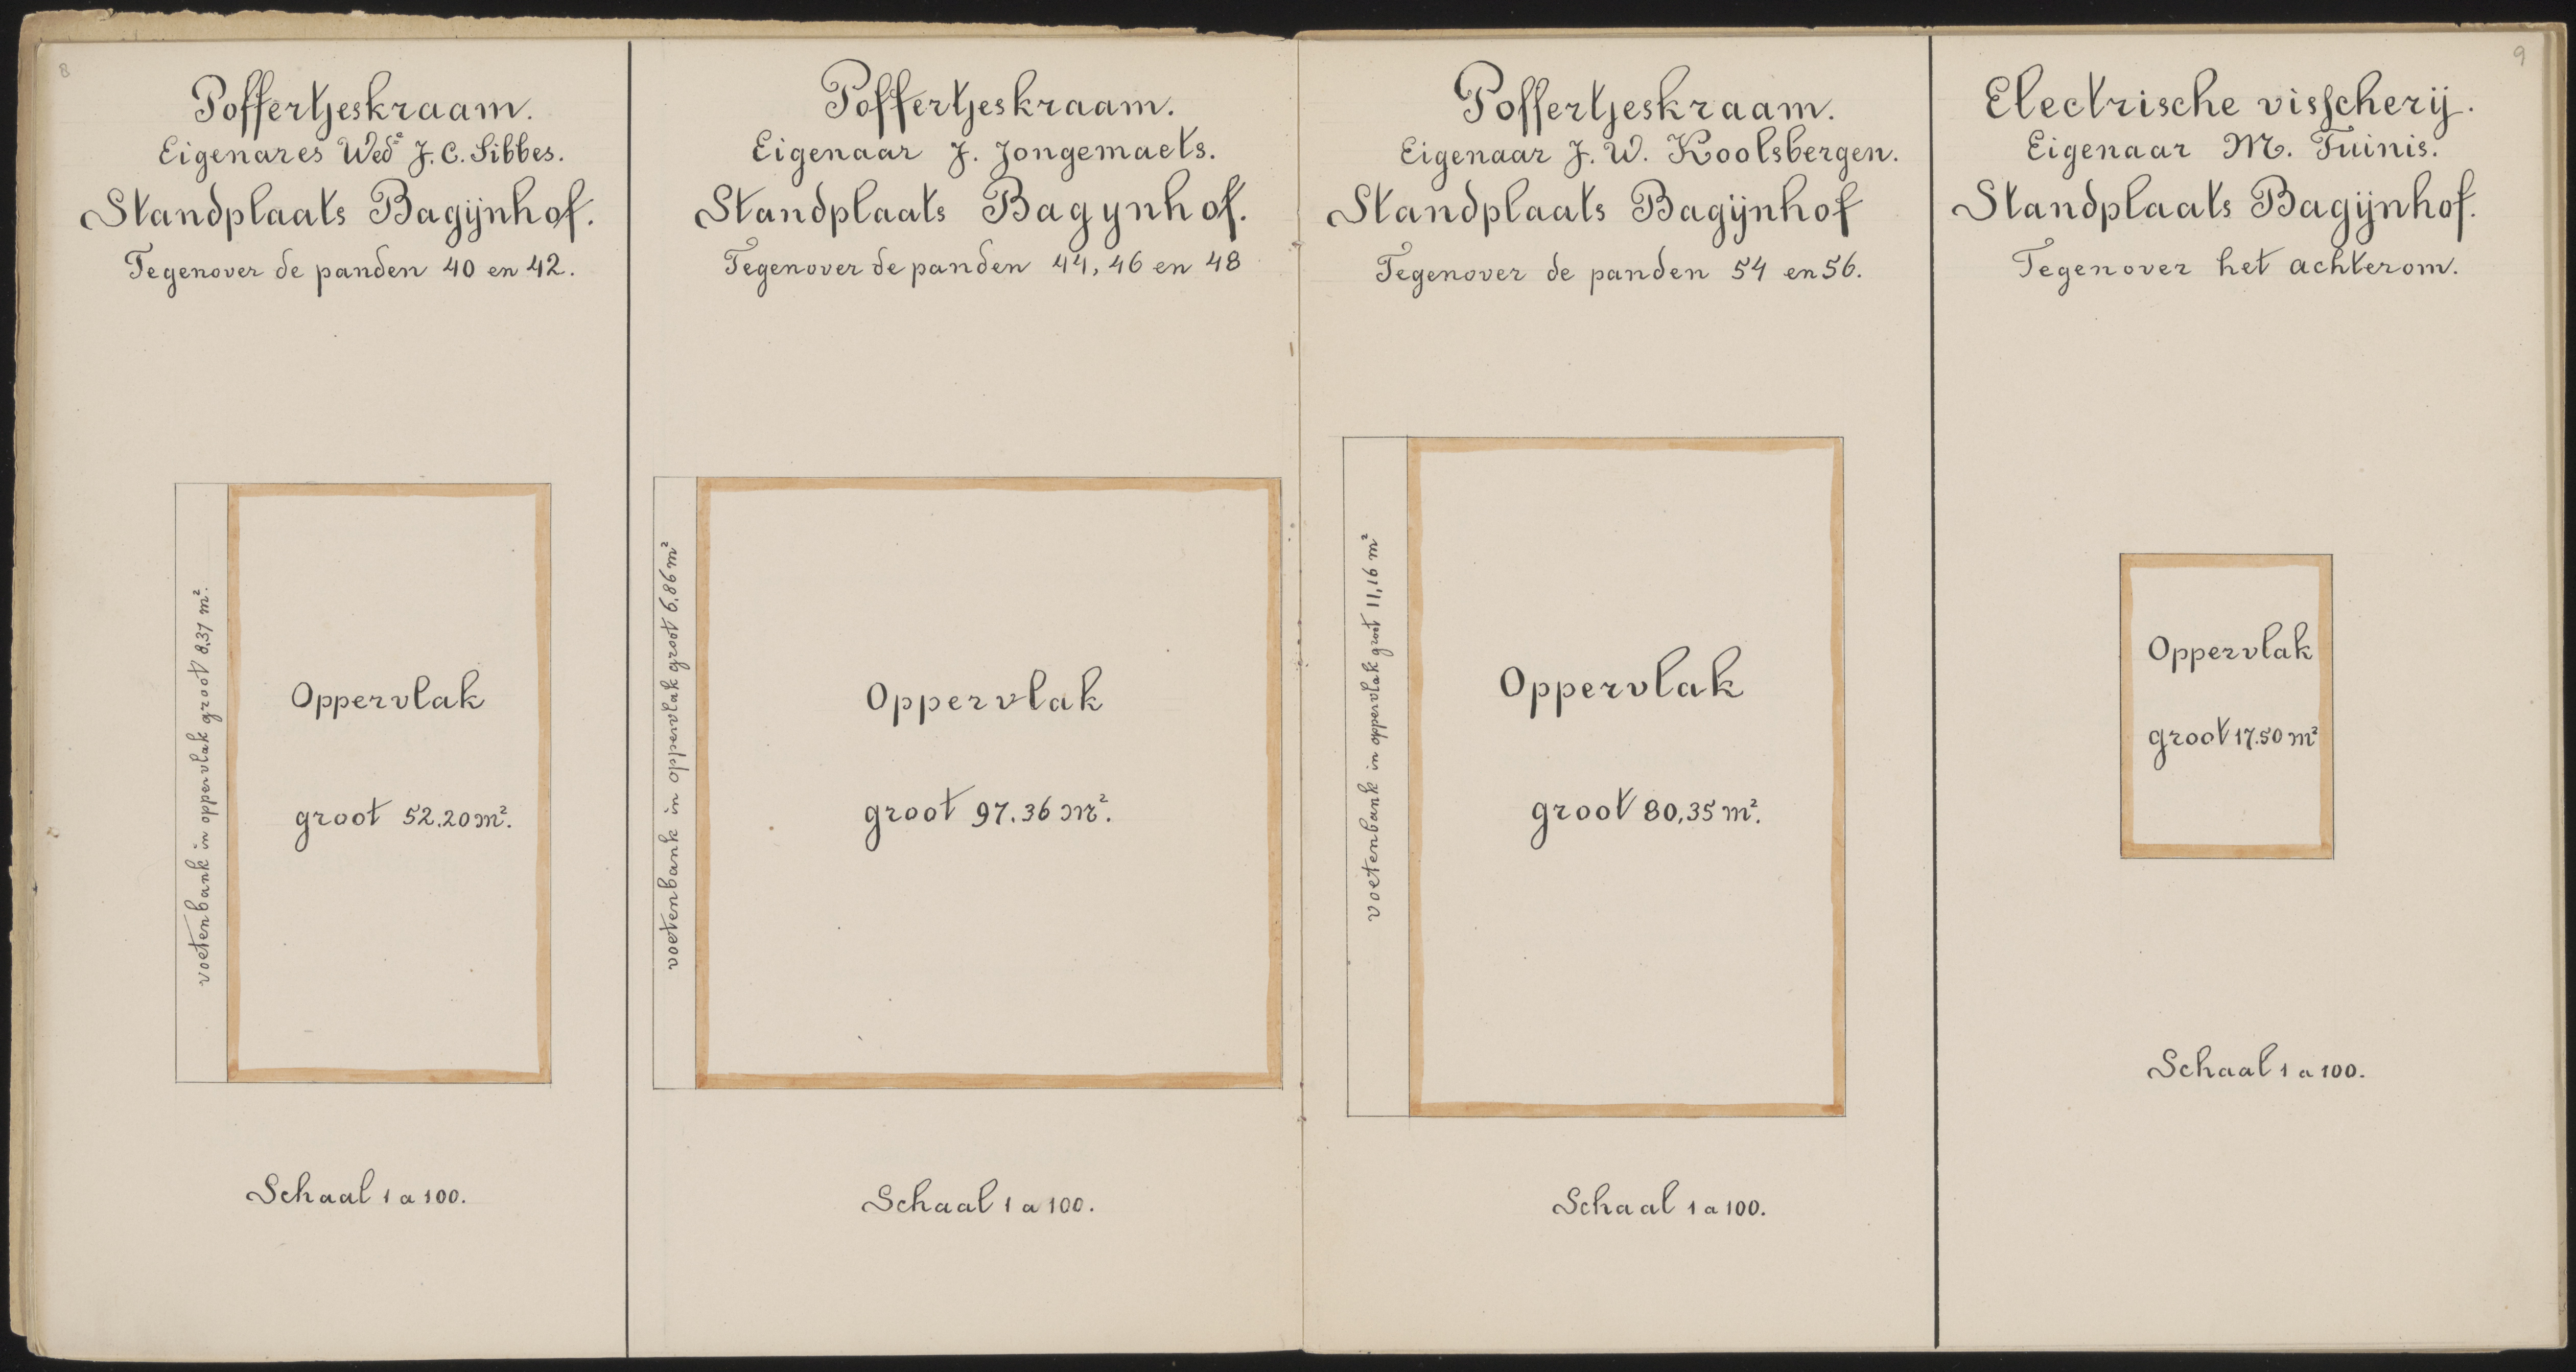 8
Poffertjeskraam.
Eigenares Wedᵉ J. C. Sibbes.
Standplaats Bagijnhof.
Tegenover de panden 40 en 42.
voetenbank in oppervlak groot 8,37 m².
Oppervlak
groot 52.20 m².
Schaal 1 a 100.
Poffertjeskraam.
Eigenaar J. Jongemaets.
Standplaats Bagynhof.
Tegenover de panden 44, 46 en 48
voetenbank in oppervlak groot 6,86 m²
Oppervlak
groot 97.36 m².
Schaal 1 a 100.
Poffertjeskraam.
Eigenaar J. W. Koolsbergen.
Standplaats Bagijnhof
Tegenover de panden 54 en 56.
voetenbank in oppervlak groot 11,16 m²
Oppervlak
groot 80,35 m².
Schaal 1 a 100.
9
Electrische visscherij.
Eigenaar M. Tuinis.
Standplaats Bagijnhof.
Tegenover het achterom.
Oppervlak
groot 17.50 m²
Schaal 1 a 100.